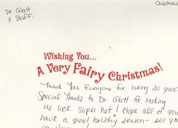 Christmas
Dr. Glatt
& Staff,
Wishing You...
A Very Fairy Christmas!
Thank You Everyone for being so great
Special Thanks to Dr. Glatt for Making
me look super hot! Hope all of you
have a great holiday season - see you